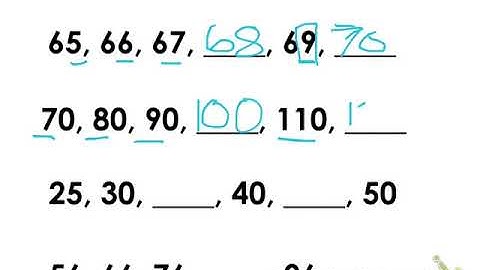 65, 66, 67, 68, 69, 70
70, 80, 90, 100, 110, 1
25, 30, ____, 40, ____, 50